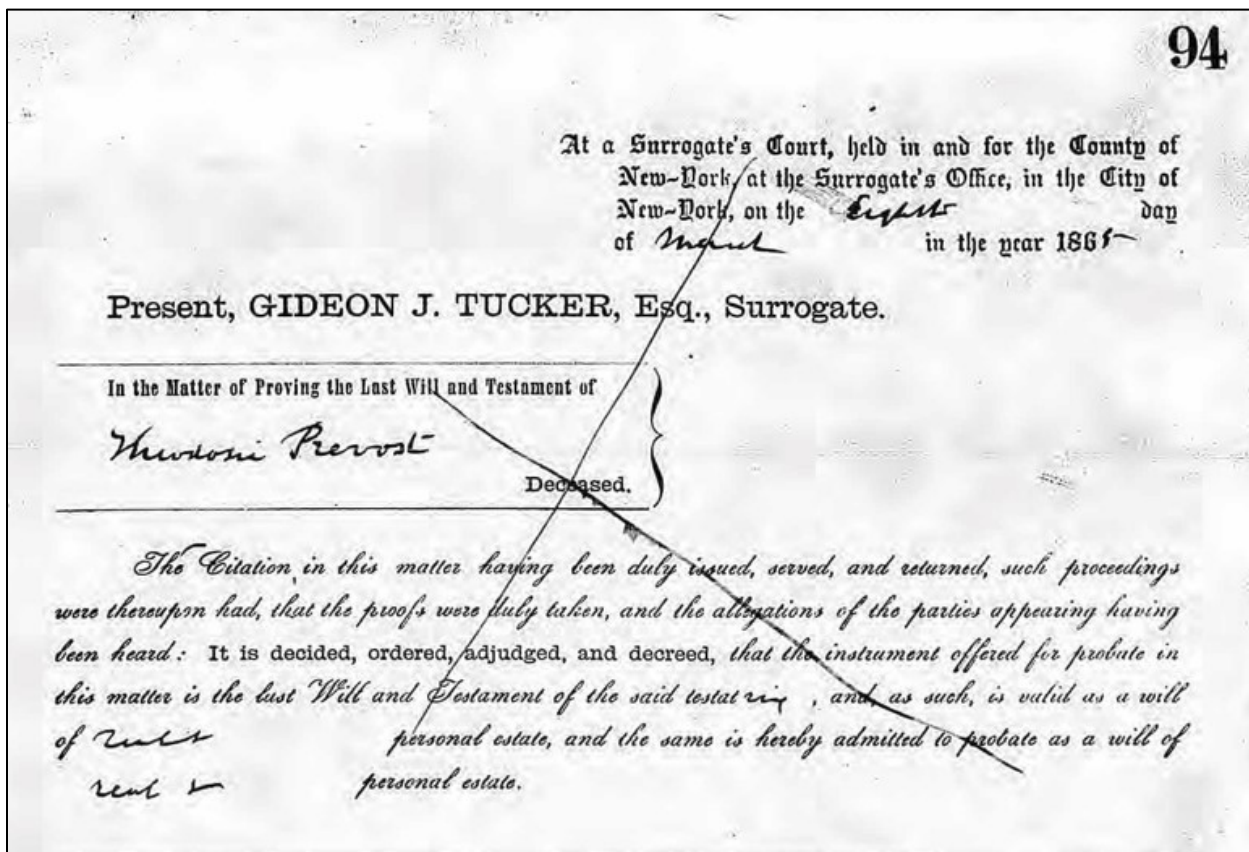 94
At a Surrogate's Court, held in and for the County of
New-York, at the Surrogate's Office, in the City of
New-York, on the Eighth day
of March in the year 1865
Present, GIDEON J. TUCKER, Esq., Surrogate.
In the Matter of Proving the Last Will and Testament of
Theodosia Prevost
Deceased.
The Citation in this matter having been duly issued, served, and returned, such proceedings
were thereupon had, that the proofs were duly taken, and the allegations of the parties appearing having
been heard: It is decided, ordered, adjudged, and decreed, that the instrument offered for probate in
this matter is the last Will and Testament of the said testatrix, and, as such, is valid as a will
of real & personal estate, and the same is hereby admitted to probate as a will of
real & personal estate.